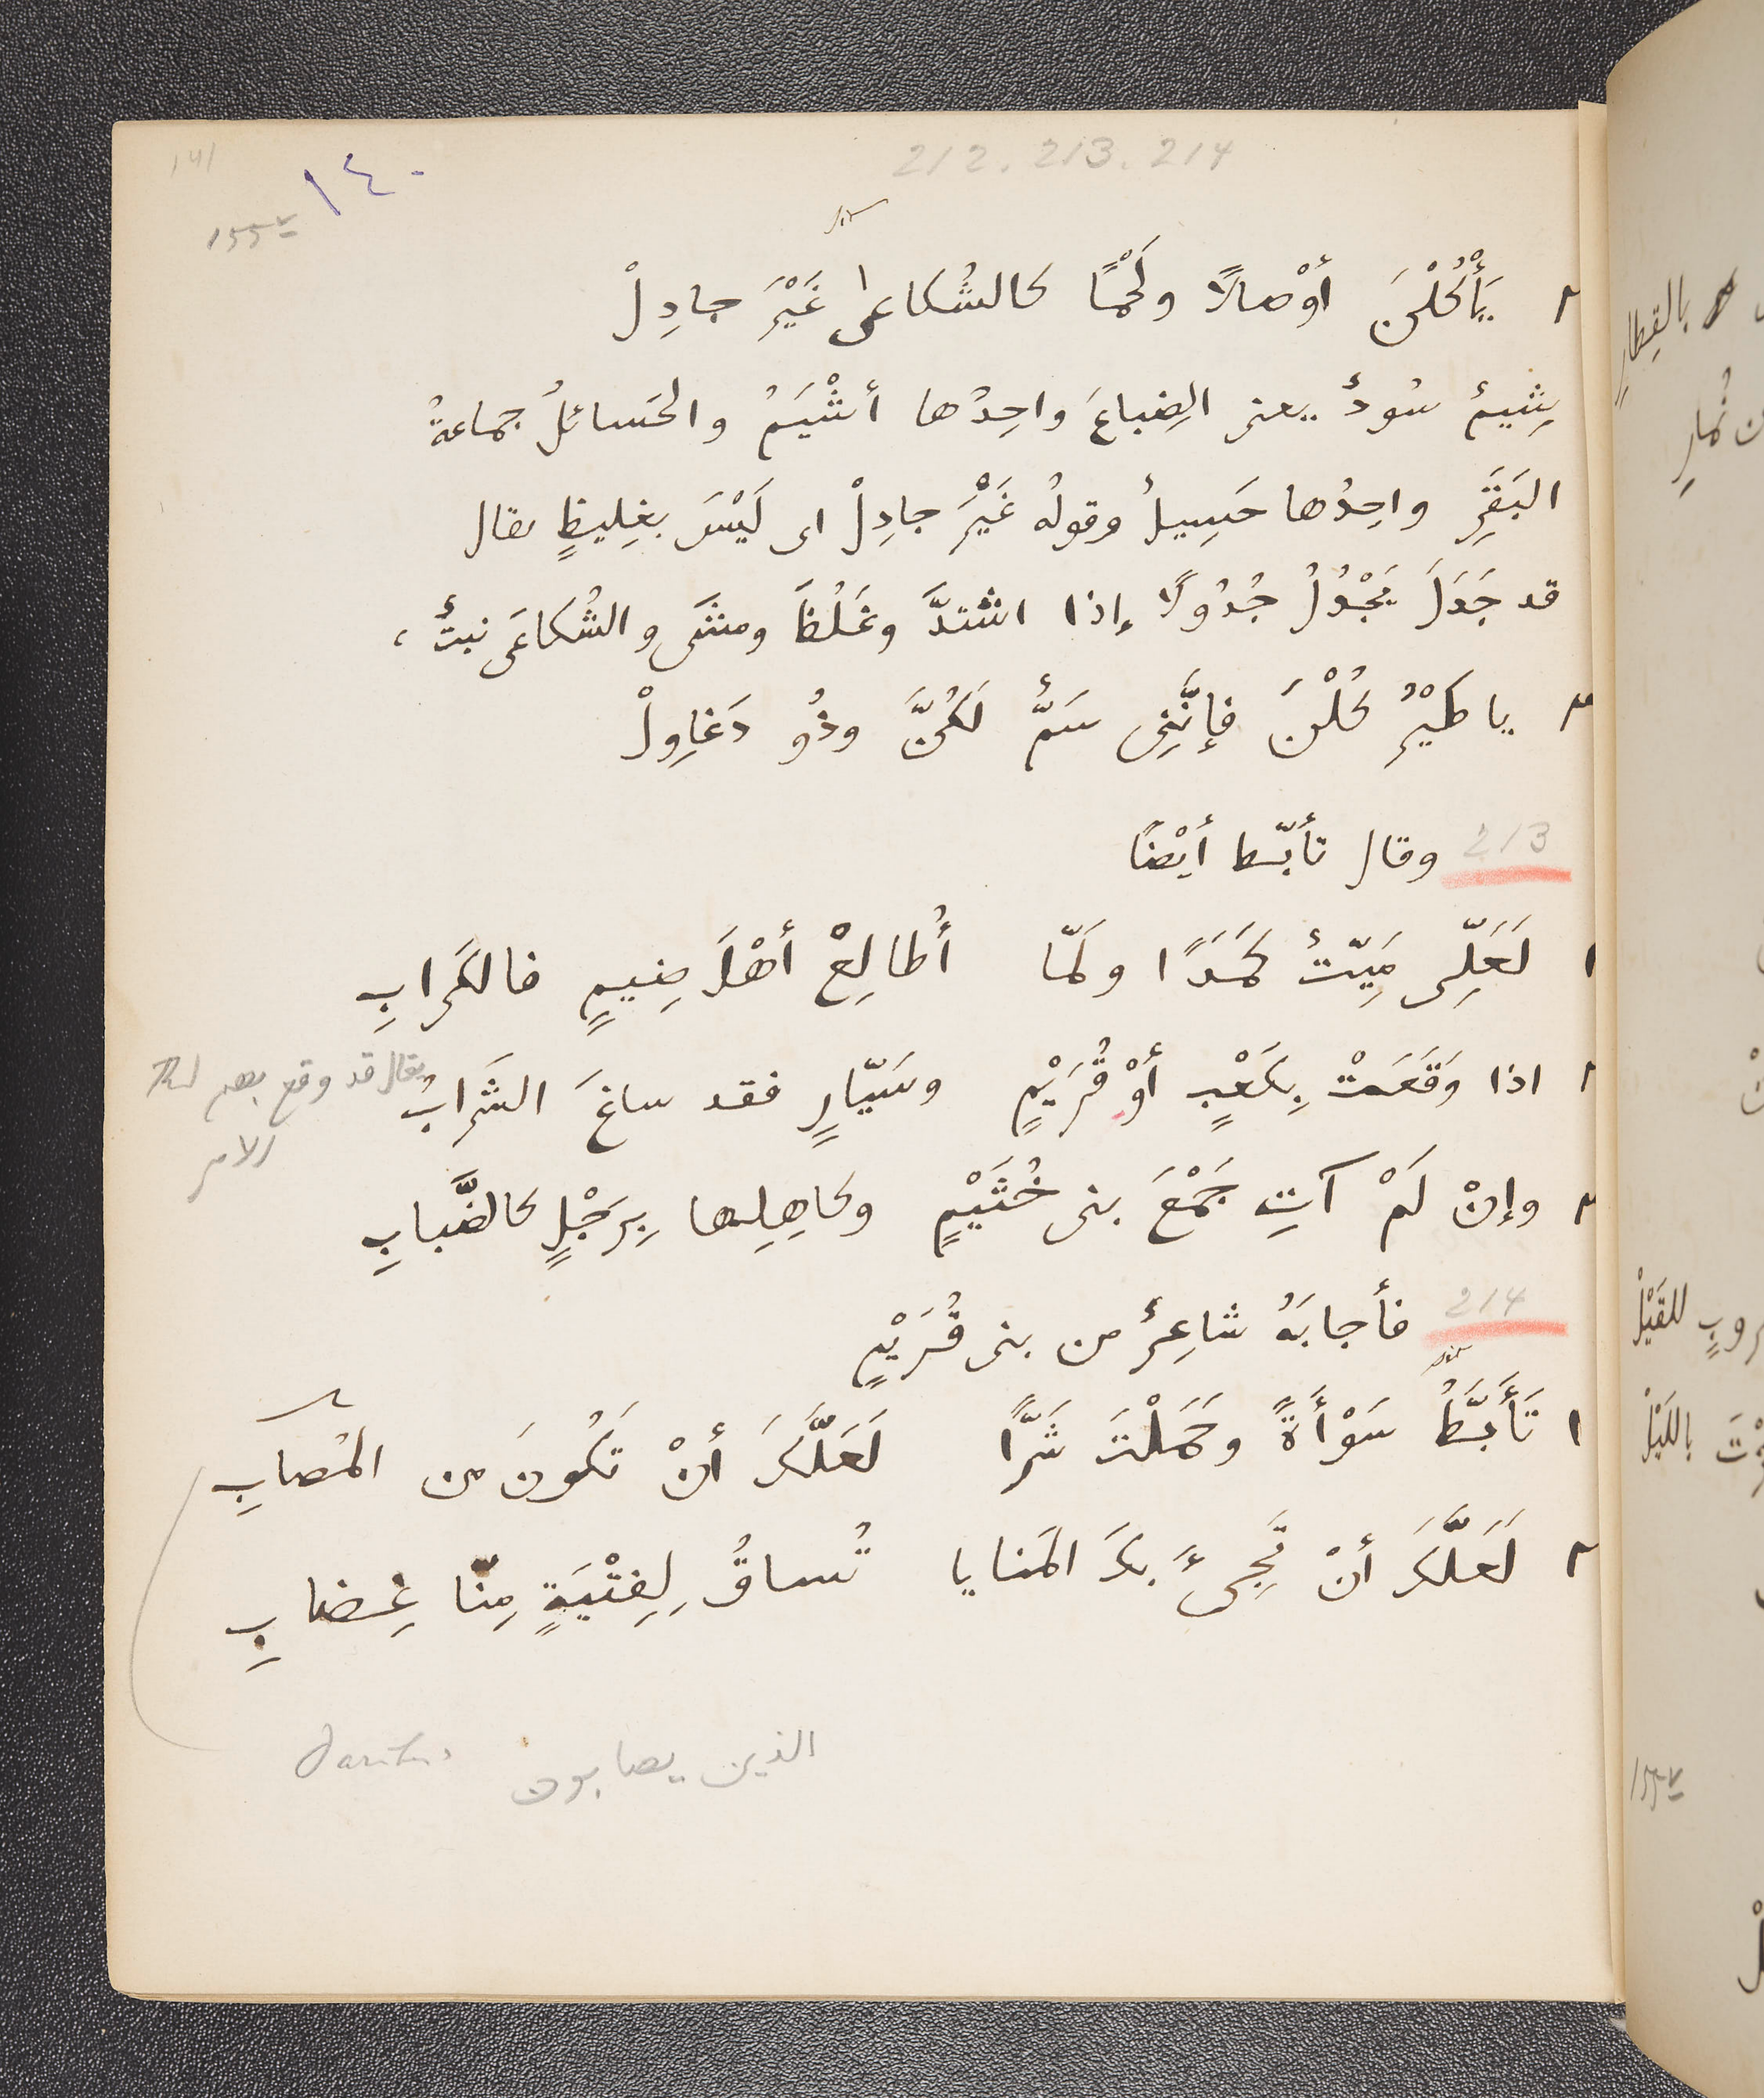 141
١٤٠
155v
212. 213. 214
٢ يَأْكُلْنَ أَوْصالًا ولَحْمًا كالشُكاعَى غَيْرَ جادِلْ
شِيمٌ سُودٌ يعنى الضِباعَ واحِدُها أَشْيَمُ والحَسائلُ جماعةُ
البَقَرِ واحِدُها حَسِيلٌ وقولُه غَيْرَ جادِلْ اى لَيْسَ بغِليظٍ يقال
قد جَدَلَ يَجْدُلُ جُدُولًا إذا اشْتدَّ وغَلُظَ ومشَى والشُكاعَى نبتٌ،
٣ يا طَيْرُ كُلْنَ فإِنَّنِى سَمٌّ لَكُنَّ وذُو دَغاوِلْ
213 وقال تأبّط أيْضًا
١ لَعَلِّى مَيِّتٌ كَمَدًا ولَمّا أُطالِعْ أَهْلَ ضِيمٍ فالكَرابِ
٢ اذا وَقَعَتْ بِكَعْبٍ أَوْ قُرَيْمٍ وسَيّارٍ فقد ساغَ الشَرابُ
يقال قد وقع بهم
الامر
٣ وإنْ لَمْ آتِ جَمْعَ بنى خُثَيْمٍ وكاهِلِها بِرَجْلٍ كالضَّبابِ
214 فأجابَهُ شاعِرٌ من بنى قُرَيْمٍ
١ تَأَبَّطُ سَوْأَةً وحَمَلْتَ شَرًّا لَعَلَّكَ أنْ تَكُونَ من المُصابِ
٢ لَعَلَّكَ أنْ تَجِىءَ بكَ المَنايا تُساقُ لِفِتْيَةٍ مِنّا غِضابِ
الذين يصابون